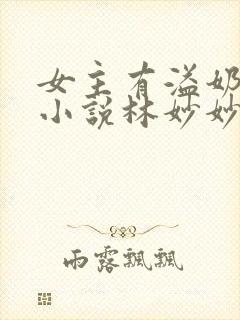 女主有溢奶
小說林妙妙
雨露飄飄